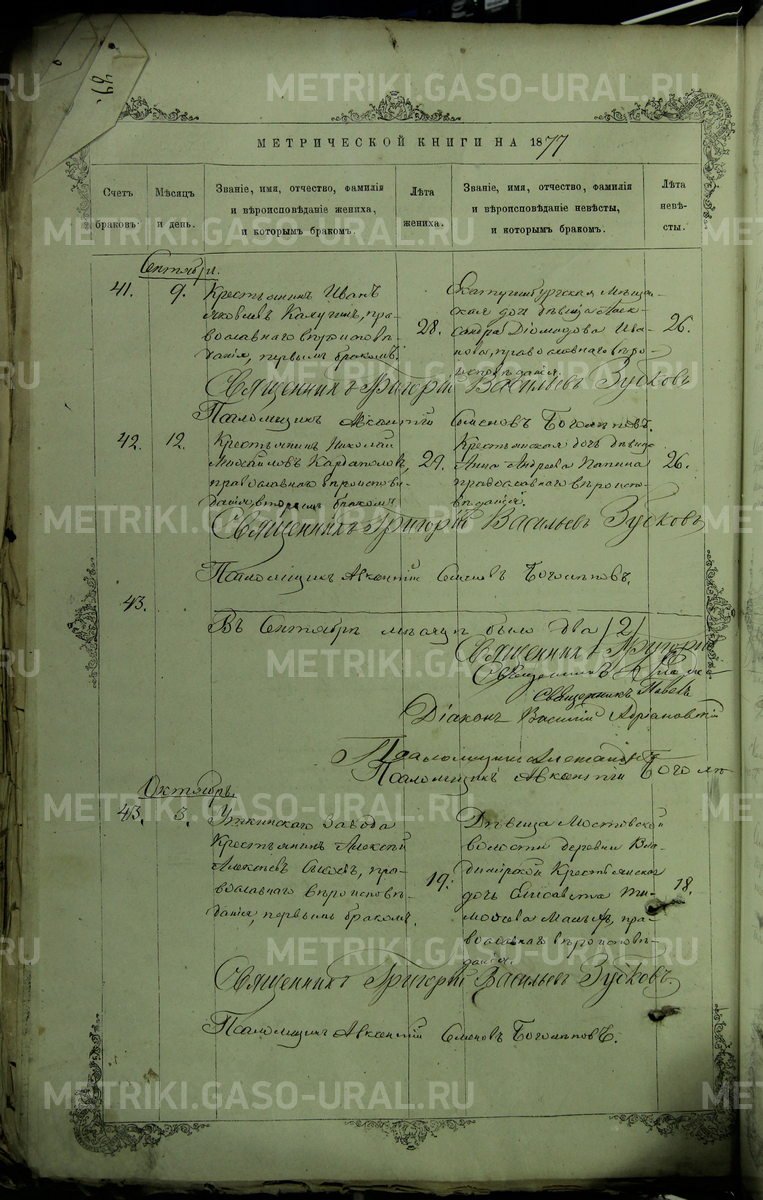 МЕТРИЧЕСКОЙ КНИГИ НА 1877
Счетъ браковъ.
Мѣсяцъ и день.
Званіе, имя, отчество, фамилія
и вѣроисповѣданіе жениха,
и которымъ бракомъ.
Лѣта жениха.
Званіе, имя, отчество, фамилія
и вѣроисповѣданіе невѣсты,
и которымъ бракомъ.
Лѣта невѣ-
сты.
Сентябрь.
41. 9.
Крестьянинъ Иванъ
Яковлевъ Калугинъ, пра-
вославнаго вѣроисповѣ-
данія, первымъ бракомъ.
28.
Екатеринбургская Мѣщан-
ская дочь дѣвица Алек-
сандра Діомидова Ива-
нова, православнаго вѣро-
исповѣданія.
26.
Священникъ Григорій Васильевъ Зубковъ
Псаломщикъ Авксентій Семеновъ Боголѣповъ.
42. 12.
Крестьянинъ Николай
Михайловъ
православнаго вѣроисповѣ-
данія, вторымъ бракомъ
29.
Крестьянская дочь дѣвица
Анна Андреева Папина
православнаго вѣроиспо-
вѣданія.
26.
Священникъ Григорій Васильевъ Зубковъ
Псаломщикъ Авксентій Семеновъ Боголѣповъ.
43.
Въ Сентябрѣ мѣсяцѣ было два /2/
Священникъ Григорій
Священникъ
Священникъ Павелъ
Діаконъ Василій Адріановскій
Псаломщикъ Александръ
Псаломщикъ Авксентій Боголѣ
Октябрь.
43. 3.
Уткинскаго Завода
Крестьянинъ Алексѣй
Алексѣевъ пра-
вославнаго вѣроисповѣ-
данія, первымъ бракомъ.
19.
Дѣвица Мостовской
волости деревни Вла-
димірской Крестьянская
дочь Елисавета Ти-
моѳеева пра-
вославнаго вѣроисповѣ-
данія.
18.
Священникъ Григорій Васильевъ Зубковъ.
Псаломщикъ Авксентій Семеновъ Боголѣповъ.
METRIKI.GASO-URAL.RU